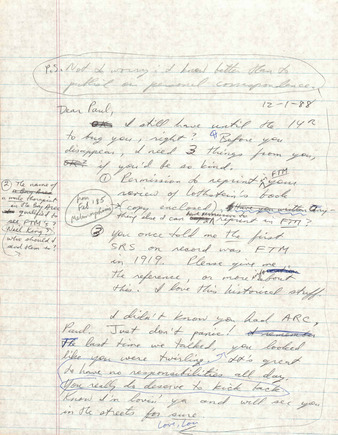 P.S. Not to worry; I know better than to
publish on personal correspondence.
12-1-88
Dear Paul,
I still have until the 14th
to bug you, right? Before you
disappear, I need 3 things from you,
if you'd be so kind.
① Permission to reprint your FTM
review of Lothstein's book
(copy enclosed).
thing else I can reprint in FTM?
from Feb '85 Metamorphosis
② The name of
a male therapist
in the Bay Area
qualified to
see FTMs?
who should I
send them to?
③ You once told me the first
SRS on record was FTM
in 1919. Please give me
the reference, or more about
this. I love this historical stuff.
I didn't know you had ARC,
Paul. Just don't panic!
The last time we talked, you looked
like you were twirling. It's great
to have no responsibilities all day.
You really do deserve to kick back.
Know I'm lovin' ya and will see you
in the streets for sure.
Love, Lou